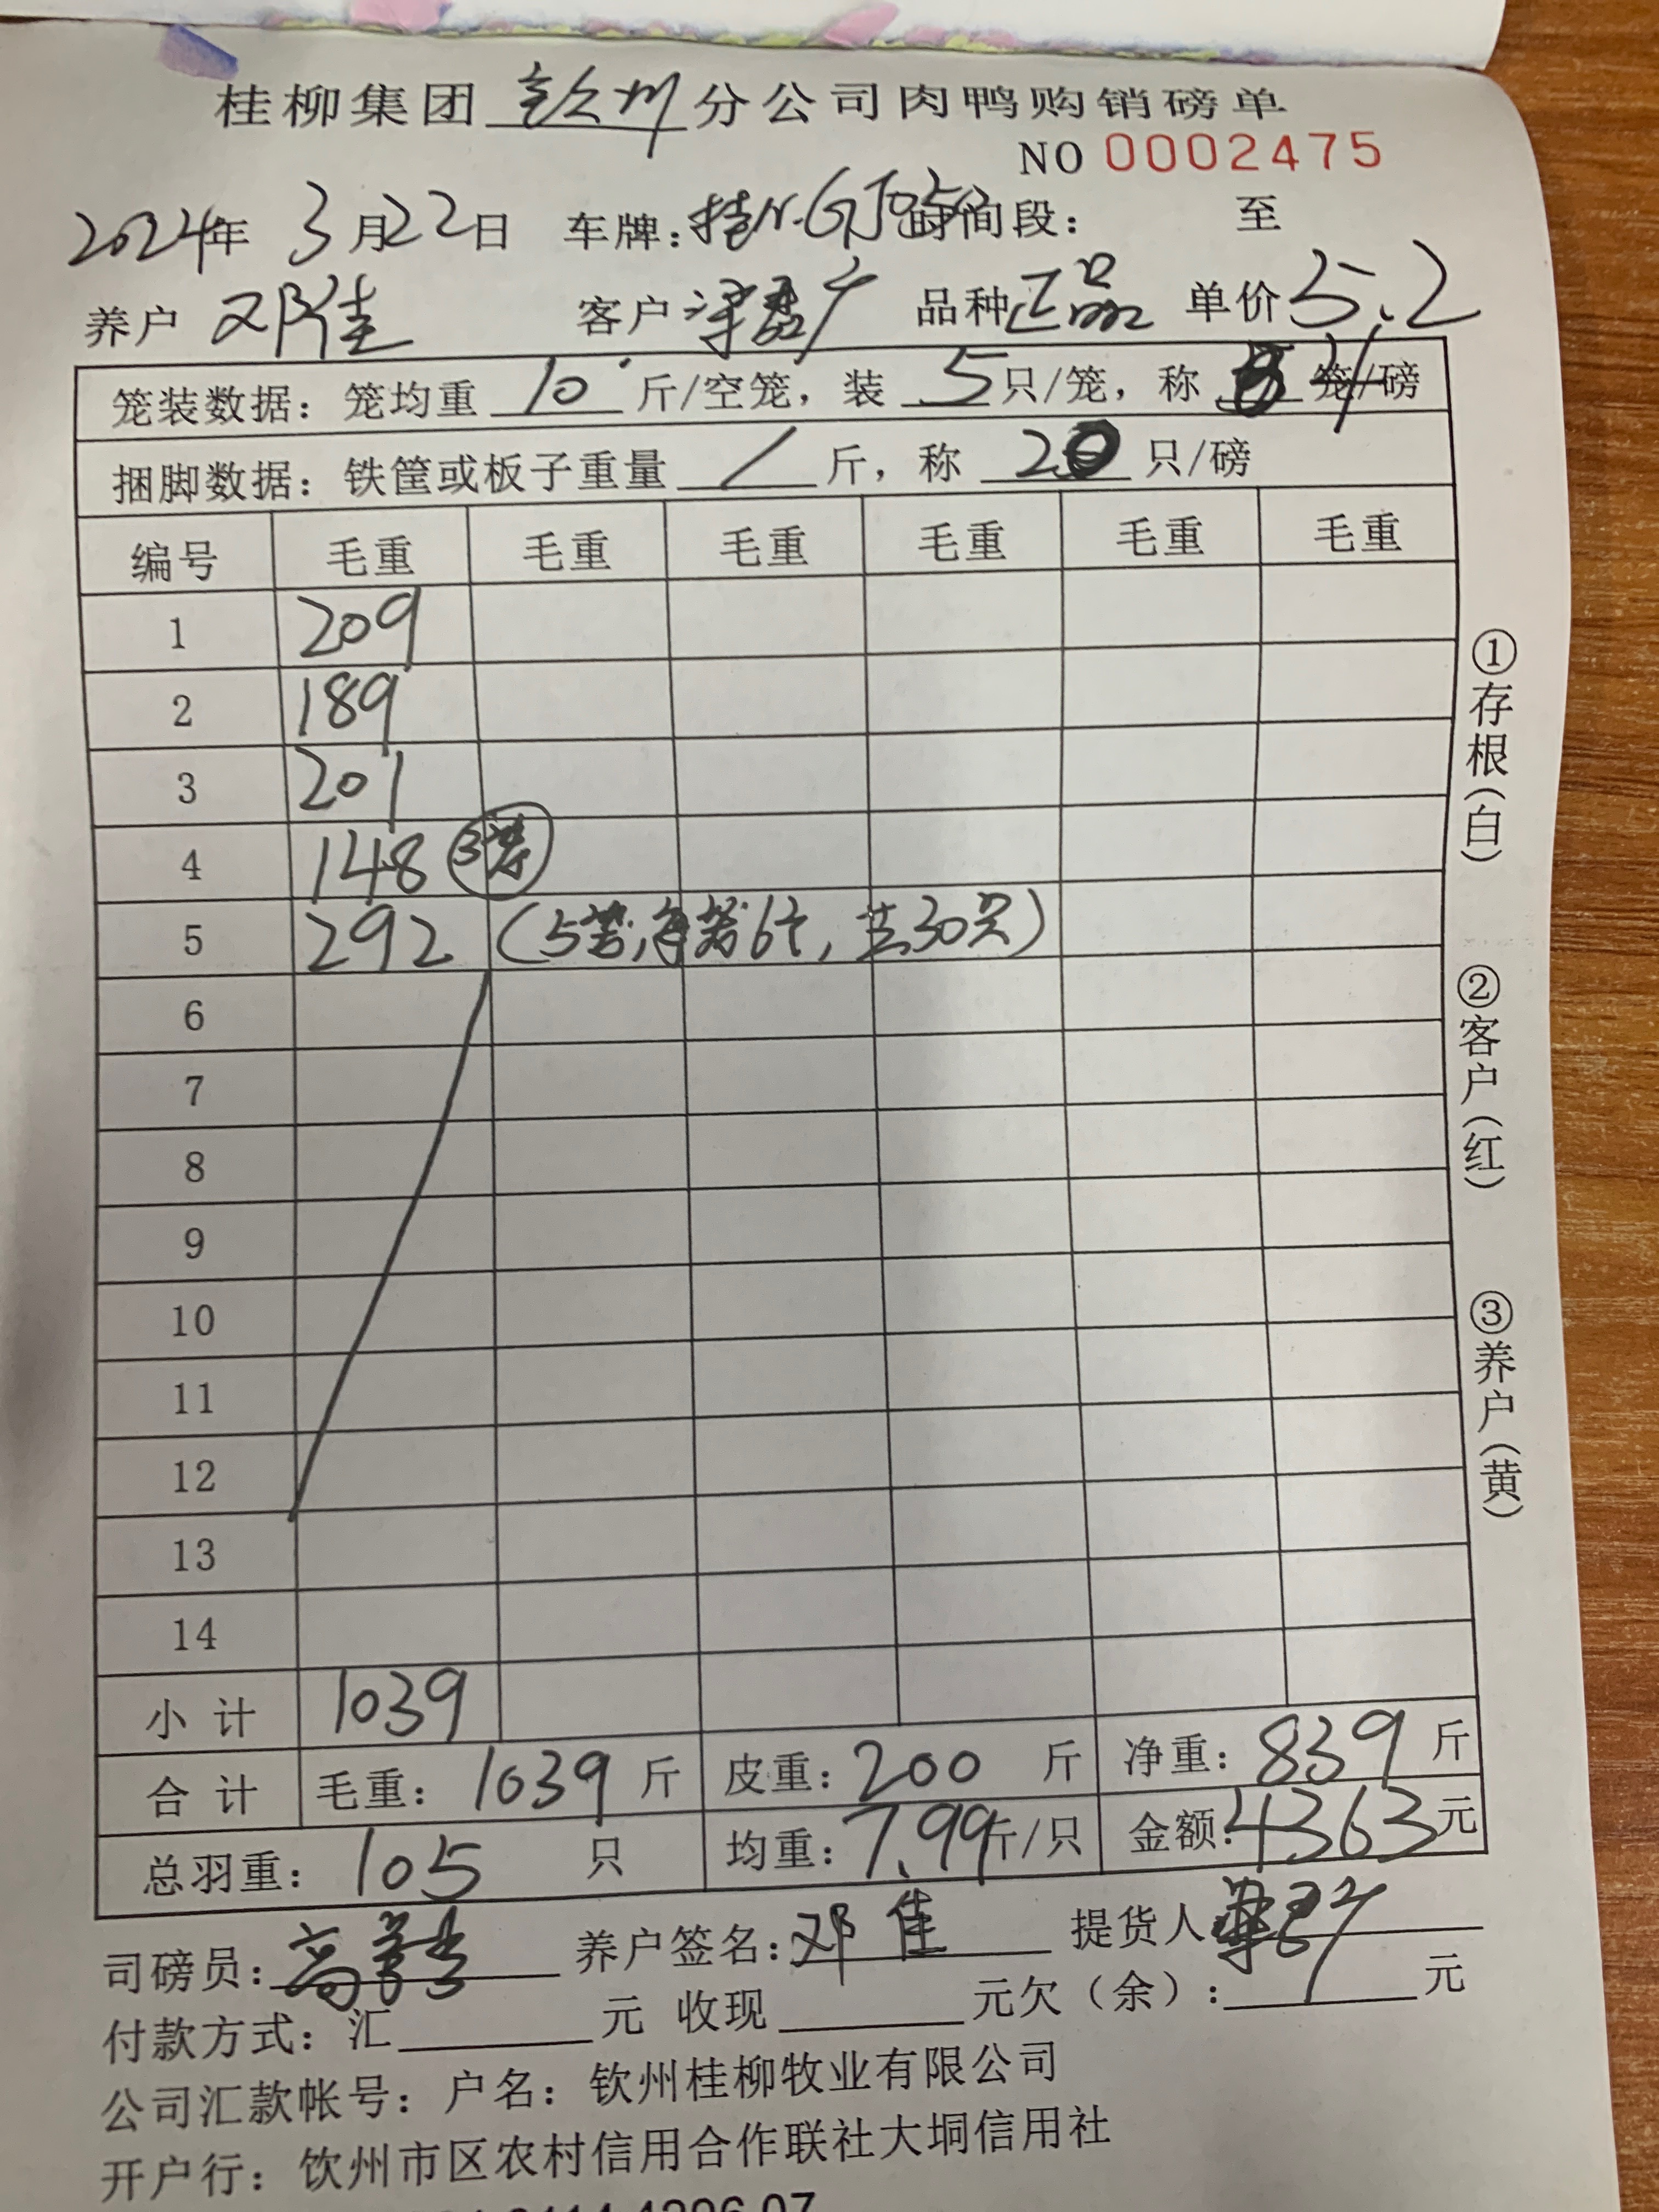 桂柳集团钦州分公司肉鸭购销磅单
NO 0002475
2024年 3月22日 车牌:桂N·GJ050 时间段: 至
养户 邓佳 客户 品种 正品 单价 5.2
笼装数据: 笼均重 10 斤/空笼, 装 5 只/笼, 称 4 笼/磅
捆脚数据: 铁筐或板子重量 / 斤, 称 20 只/磅
编号 毛重 毛重 毛重 毛重 毛重 毛重
1 209
2 189
3 201
4 148 3笼
5 292 (5笼,每笼6只,共30只)
6
7
8
9
10
11
12
13
14
小计 1039
合计 毛重: 1039 斤 皮重: 200 斤 净重: 839 斤
总羽重: 105 只 均重: 7.99斤/只 金额: 4363元
司磅员: 养户签名: 邓佳 提货人
付款方式: 汇 元 收现 元欠(余): 元
公司汇款帐号: 户名: 钦州桂柳牧业有限公司
开户行: 钦州市区农村信用合作联社大垌信用社
①存根(白)
②客户(红)
③养户(黄)